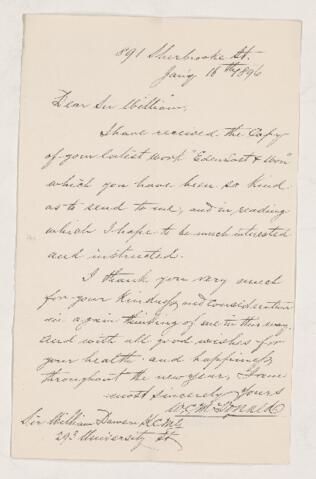 891 Sherbrooke St.
Jan'y 18th 1896
Dear Sir William,
I have received the Copy
of your latest work "Eden Lost & Won"
which you have been so kind
as to send to me, and in reading
which I hope to be much interested
and instructed.
I thank you very much
for your kindness and consideration
in again thinking of me in this way,
and with all good wishes for
your health and happiness
throughout the new year, I am
most sincerely yours
W. C. McDonald
Sir William Dawson K.C.M.G
293 University St